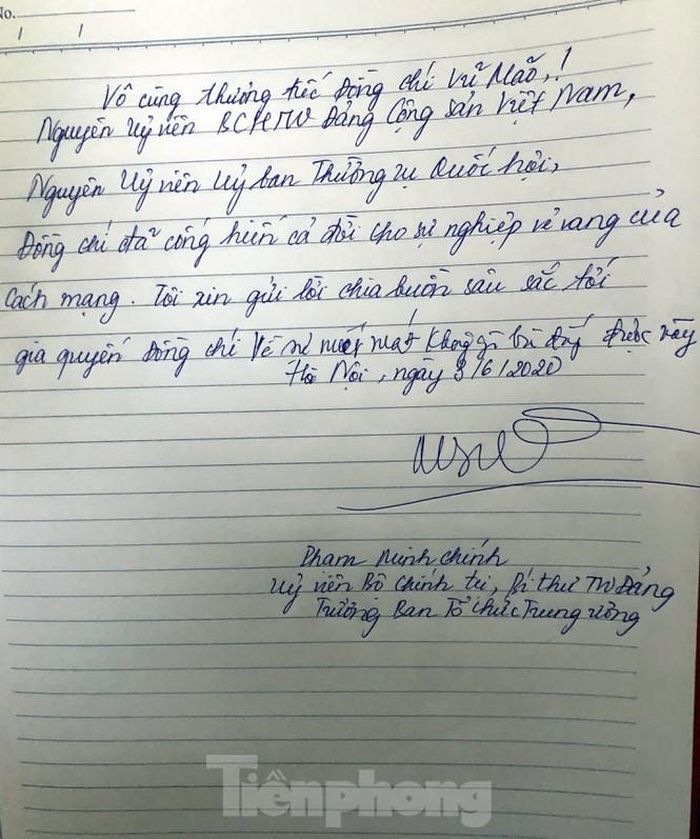 No.
/ /
Vô cùng thương tiếc Đồng chí Vũ Mão,!
Nguyên Uỷ viên BCHTW Đảng Cộng sản Việt Nam,
Nguyên Uỷ viên Uỷ ban Thường vụ Quốc hội,
Đồng chí đã cống hiến cả đời cho sự nghiệp vẻ vang của
Cách mạng. Tôi xin gửi lời chia buồn sâu sắc tới
gia quyến đồng chí về sự mất mát không gì bù đắp được này
Hà Nội, ngày 3/6/2020
Phạm Minh Chính
Uỷ viên Bộ Chính trị, Bí thư TW Đảng
Trưởng Ban Tổ chức Trung ương
Tiềnphong